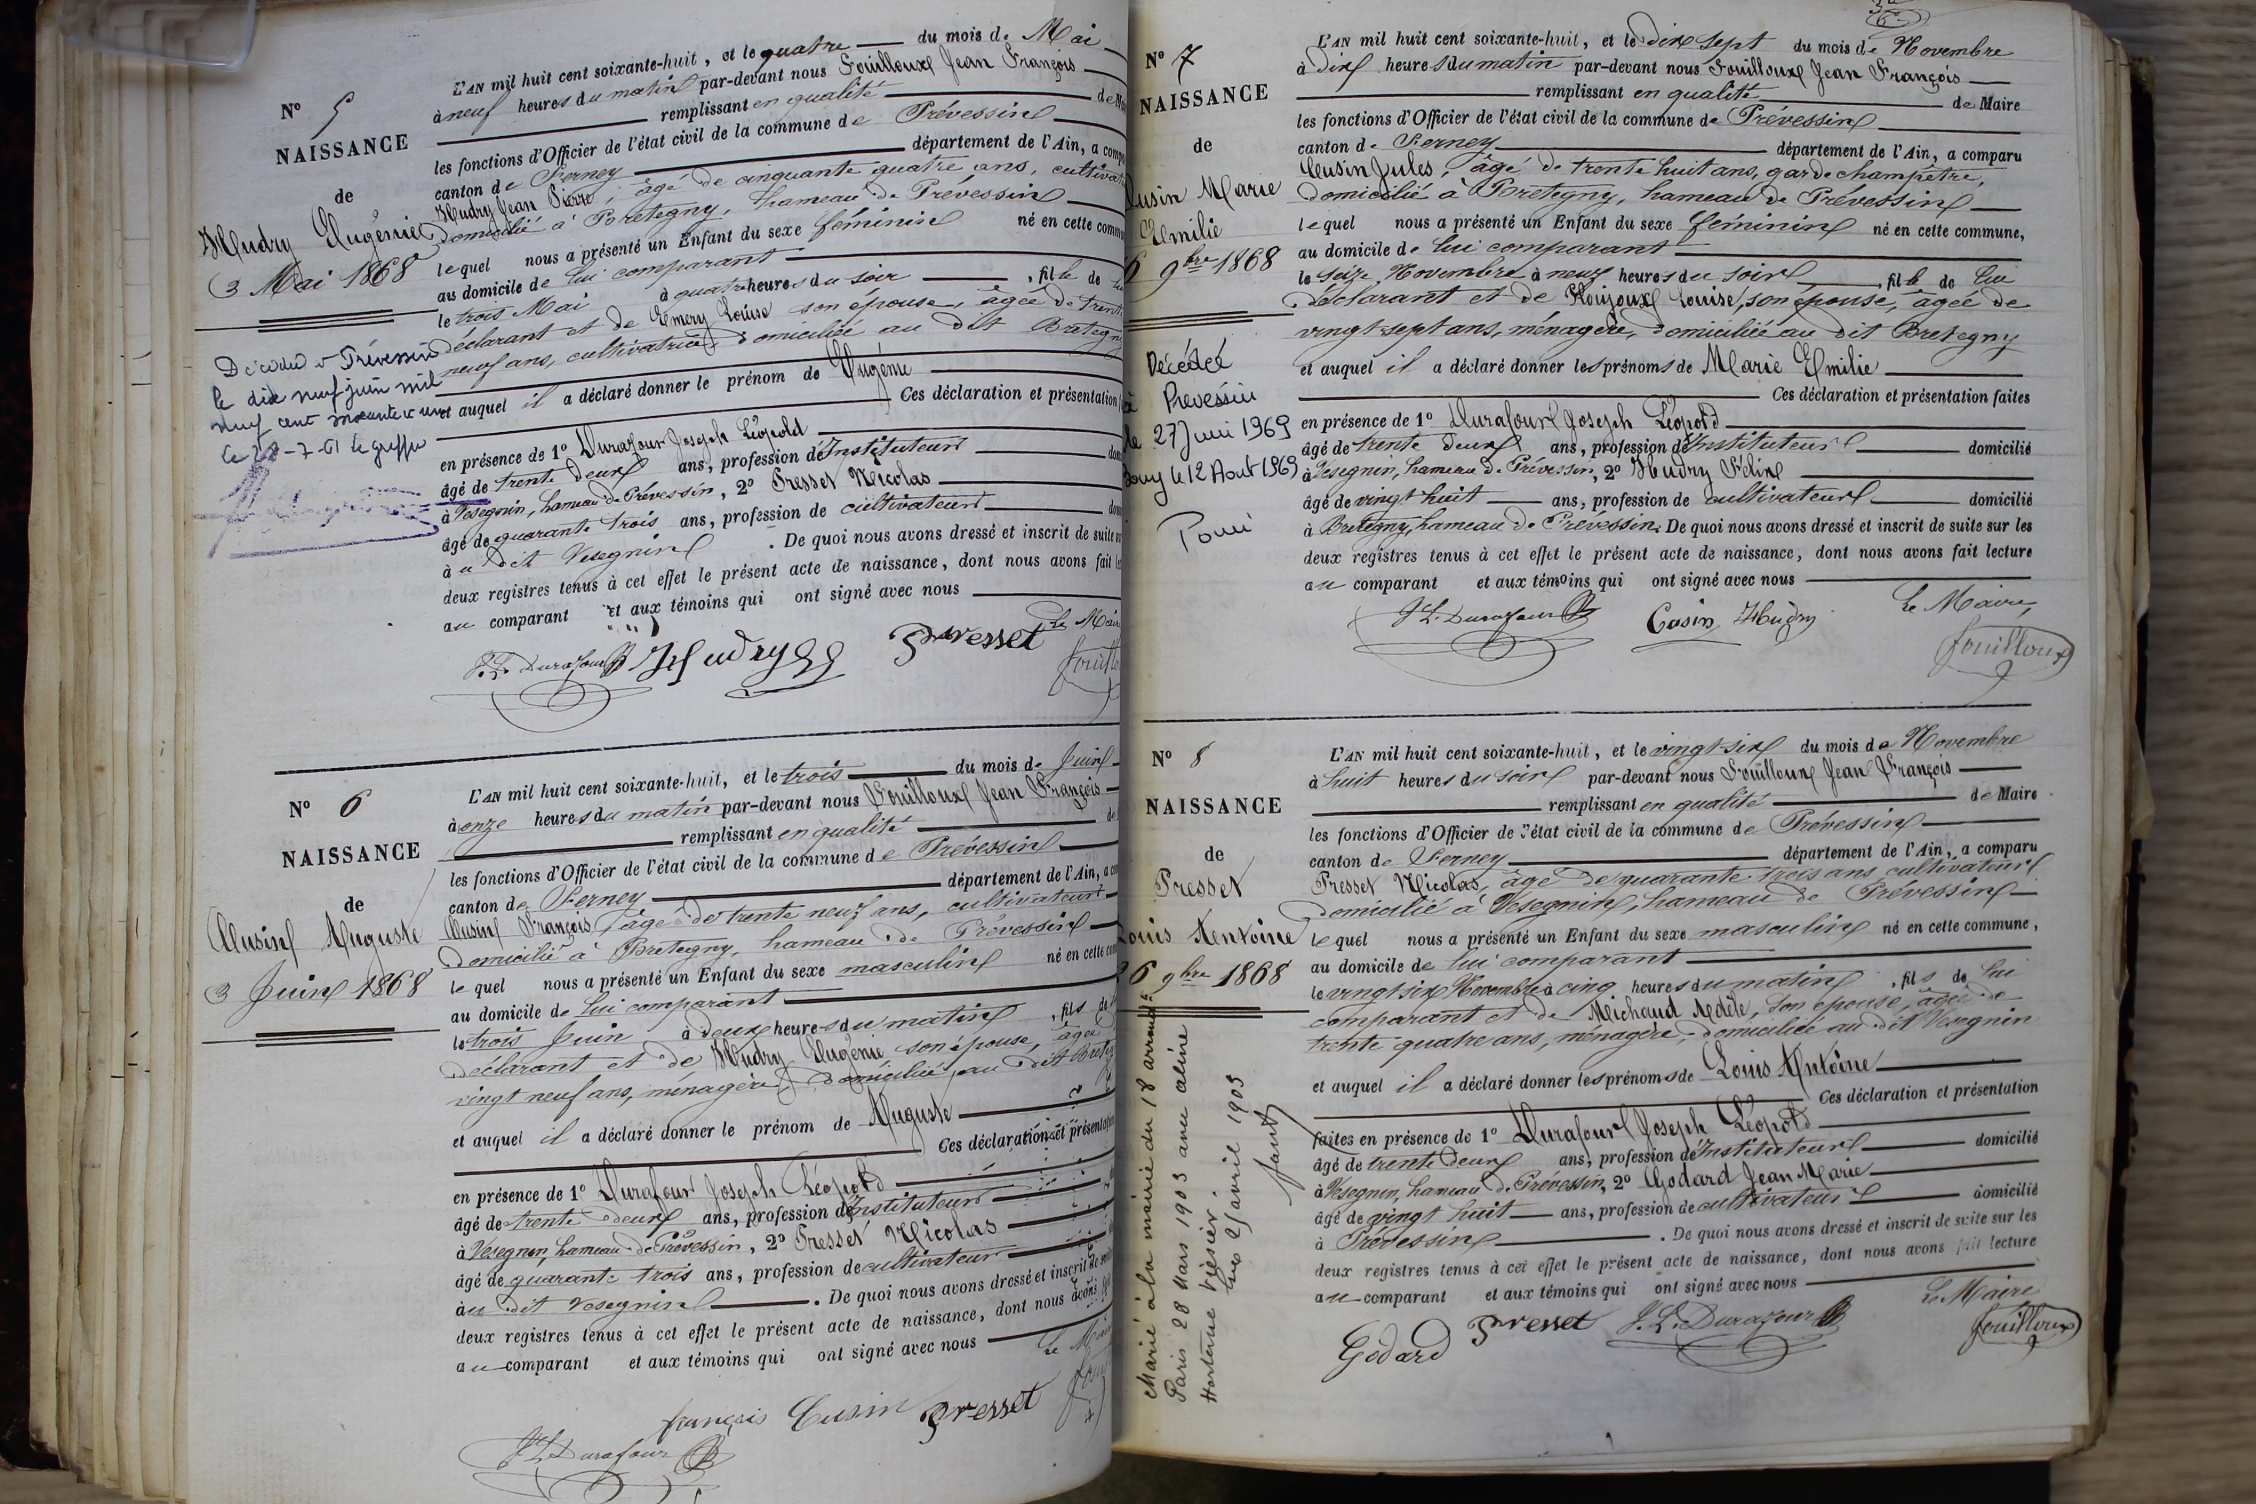 N° 5
NAISSANCE
de
Hudry Eugénie
3 Mai 1868
Décédée à Prévessin
le dix neuf juin mil
neuf cent soixante et un
Ce 28-7-61 le greffier
L'AN mil huit cent soixante-huit, et le quatre du mois de Mai
à neuf heures du matin par-devant nous Fouilloux Jean François
remplissant en qualité de
les fonctions d'Officier de l'état civil de la commune de Prévessin
canton de Ferney département de l'Ain, a
Hudry Jean Pierre, âgé de cinquante quatre ans,
domicilié à Bretegny, hameau de Prévessin
lequel nous a présenté un Enfant du sexe féminin né en cette
au domicile de lui comparant
le trois Mai à quatre heures du soir, fille de
déclarant et de Emery Louise son épouse, âgée de
neuf ans, cultivatrice domiciliée au dit
et auquel il a déclaré donner le prénom de Eugénie
Ces déclaration et présentation
en présence de 1° Durafour Joseph Léopold
âgé de trente deux ans, profession d'Instituteur
à Vesegnin, hameau de Prévessin, 2° Presset Nicolas
âgé de quarante trois ans, profession de cultivateur
au dit Vesegnin. De quoi nous avons dressé et inscrit de suite
deux registres tenus à cet effet le présent acte de naissance, dont nous avons fait
au comparant et aux témoins qui ont signé avec nous
Le
J. L. Durafour Hudry Presset
N° 6
NAISSANCE
de
Cusin Auguste
3 Juin 1868
L'AN mil huit cent soixante-huit, et le trois du mois de Juin
à onze heures du matin par-devant nous Fouilloux Jean François
remplissant en qualité de
les fonctions d'Officier de l'état civil de la commune de Prévessin
canton de Ferney département de l'Ain, a
Cusin François, âgé de trente neuf ans, cultivateur
domicilié à Bretegny, hameau de Prévessin
lequel nous a présenté un Enfant du sexe masculin né en cette
au domicile de lui comparant
le trois Juin à deux heures du matin, fils de
déclarant et de Hudry Eugénie son épouse, âgée
vingt neuf ans, ménagère, domiciliée au dit
et auquel il a déclaré donner le prénom de Auguste
Ces déclaration et
en présence de 1° Durafour Joseph Léopold
âgé de trente deux ans, profession d'Instituteur
à Vesegnin, hameau de Prévessin, 2° Presset Nicolas
âgé de quarante trois ans, profession de cultivateur
au dit Vesegnin. De quoi nous avons dressé et inscrit de
deux registres tenus à cet effet le présent acte de naissance, dont nous avons
au comparant et aux témoins qui ont signé avec nous
Le
françois Cusin Presset
J. L. Durafour
N° 7
NAISSANCE
de
Cusin Marie
Emilie
6 9bre 1868
Décédée
à Prévessin
le 27 Juin 1969
le 12 Août 1969
L'AN mil huit cent soixante-huit, et le dix sept du mois de Novembre
à dix heures du matin par-devant nous Fouilloux Jean François
remplissant en qualité de Maire
les fonctions d'Officier de l'état civil de la commune de Prévessin
canton de Ferney département de l'Ain, a comparu
Cusin Jules, âgé de trente huit ans, garde champêtre,
domicilié à Bretegny, hameau de Prévessin
lequel nous a présenté un Enfant du sexe féminin né en cette commune,
au domicile de lui comparant
le seize Novembre à neuf heures du soir, fille de lui
déclarant et de Louise, son épouse, âgée de
vingt sept ans, ménagère, domiciliée au dit Bretegny
et auquel il a déclaré donner les prénoms de Marie Emilie
Ces déclaration et présentation faites
en présence de 1° Durafour Joseph Léopold
âgé de trente deux ans, profession d'Instituteur domicilié
à Vesegnin, hameau de Prévessin, 2° Hudry Félix
âgé de vingt huit ans, profession de cultivateur domicilié
à Bretegny, hameau de Prévessin. De quoi nous avons dressé et inscrit de suite sur les
deux registres tenus à cet effet le présent acte de naissance, dont nous avons fait lecture
au comparant et aux témoins qui ont signé avec nous
Le Maire,
J. L. Durafour Cusin Hudry
fouilloux
N° 8
NAISSANCE
de
Presset
Louis Antoine
26 9bre 1868
Marié à la mairie du 18 arrondt
Paris 28 Mars 1903 avec Céline
Hortense
25 avril 1903
L'AN mil huit cent soixante-huit, et le vingt-six du mois de Novembre
à huit heures du soir par-devant nous Fouilloux Jean François
remplissant en qualité de Maire
les fonctions d'Officier de l'état civil de la commune de Prévessin
canton de Ferney département de l'Ain, a comparu
Presset Nicolas, âgé de quarante trois ans cultivateur
domicilié à Vesegnin, hameau de Prévessin
lequel nous a présenté un Enfant du sexe masculin né en cette commune,
au domicile de lui comparant
le vingt six Novembre à cinq heures du matin, fils de lui
comparant et de Michaud Adèle, son épouse, âgée de
trente quatre ans, ménagère, domiciliée au dit Vesegnin
et auquel il a déclaré donner les prénoms de Louis Antoine
Ces déclaration et présentation
faites en présence de 1° Durafour Joseph Léopold
âgé de trente deux ans, profession d'Instituteur domicilié
à Vesegnin, hameau de Prévessin, 2° Godard Jean Marie
âgé de vingt huit ans, profession de cultivateur domicilié
à Prévessin. De quoi nous avons dressé et inscrit de suite sur les
deux registres tenus à cet effet le présent acte de naissance, dont nous avons fait lecture
au comparant et aux témoins qui ont signé avec nous
Le Maire
Godard Presset J. L. Durafour fouilloux